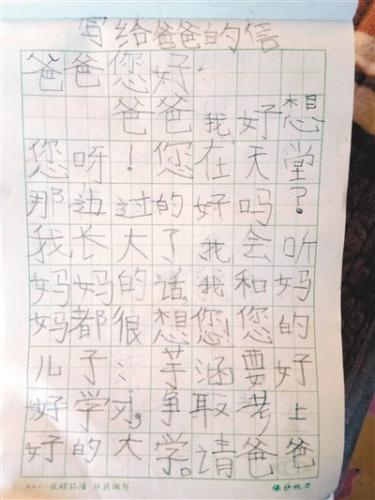 写给爸爸的信
爸爸您好
爸爸我好想
您呀！您在天堂
那边过的好吗？
我长大了我会听
妈妈的话，我和妈
妈都很想您！您的
儿子：芋涵要好
好学习，争取考上
好的大学。请爸爸